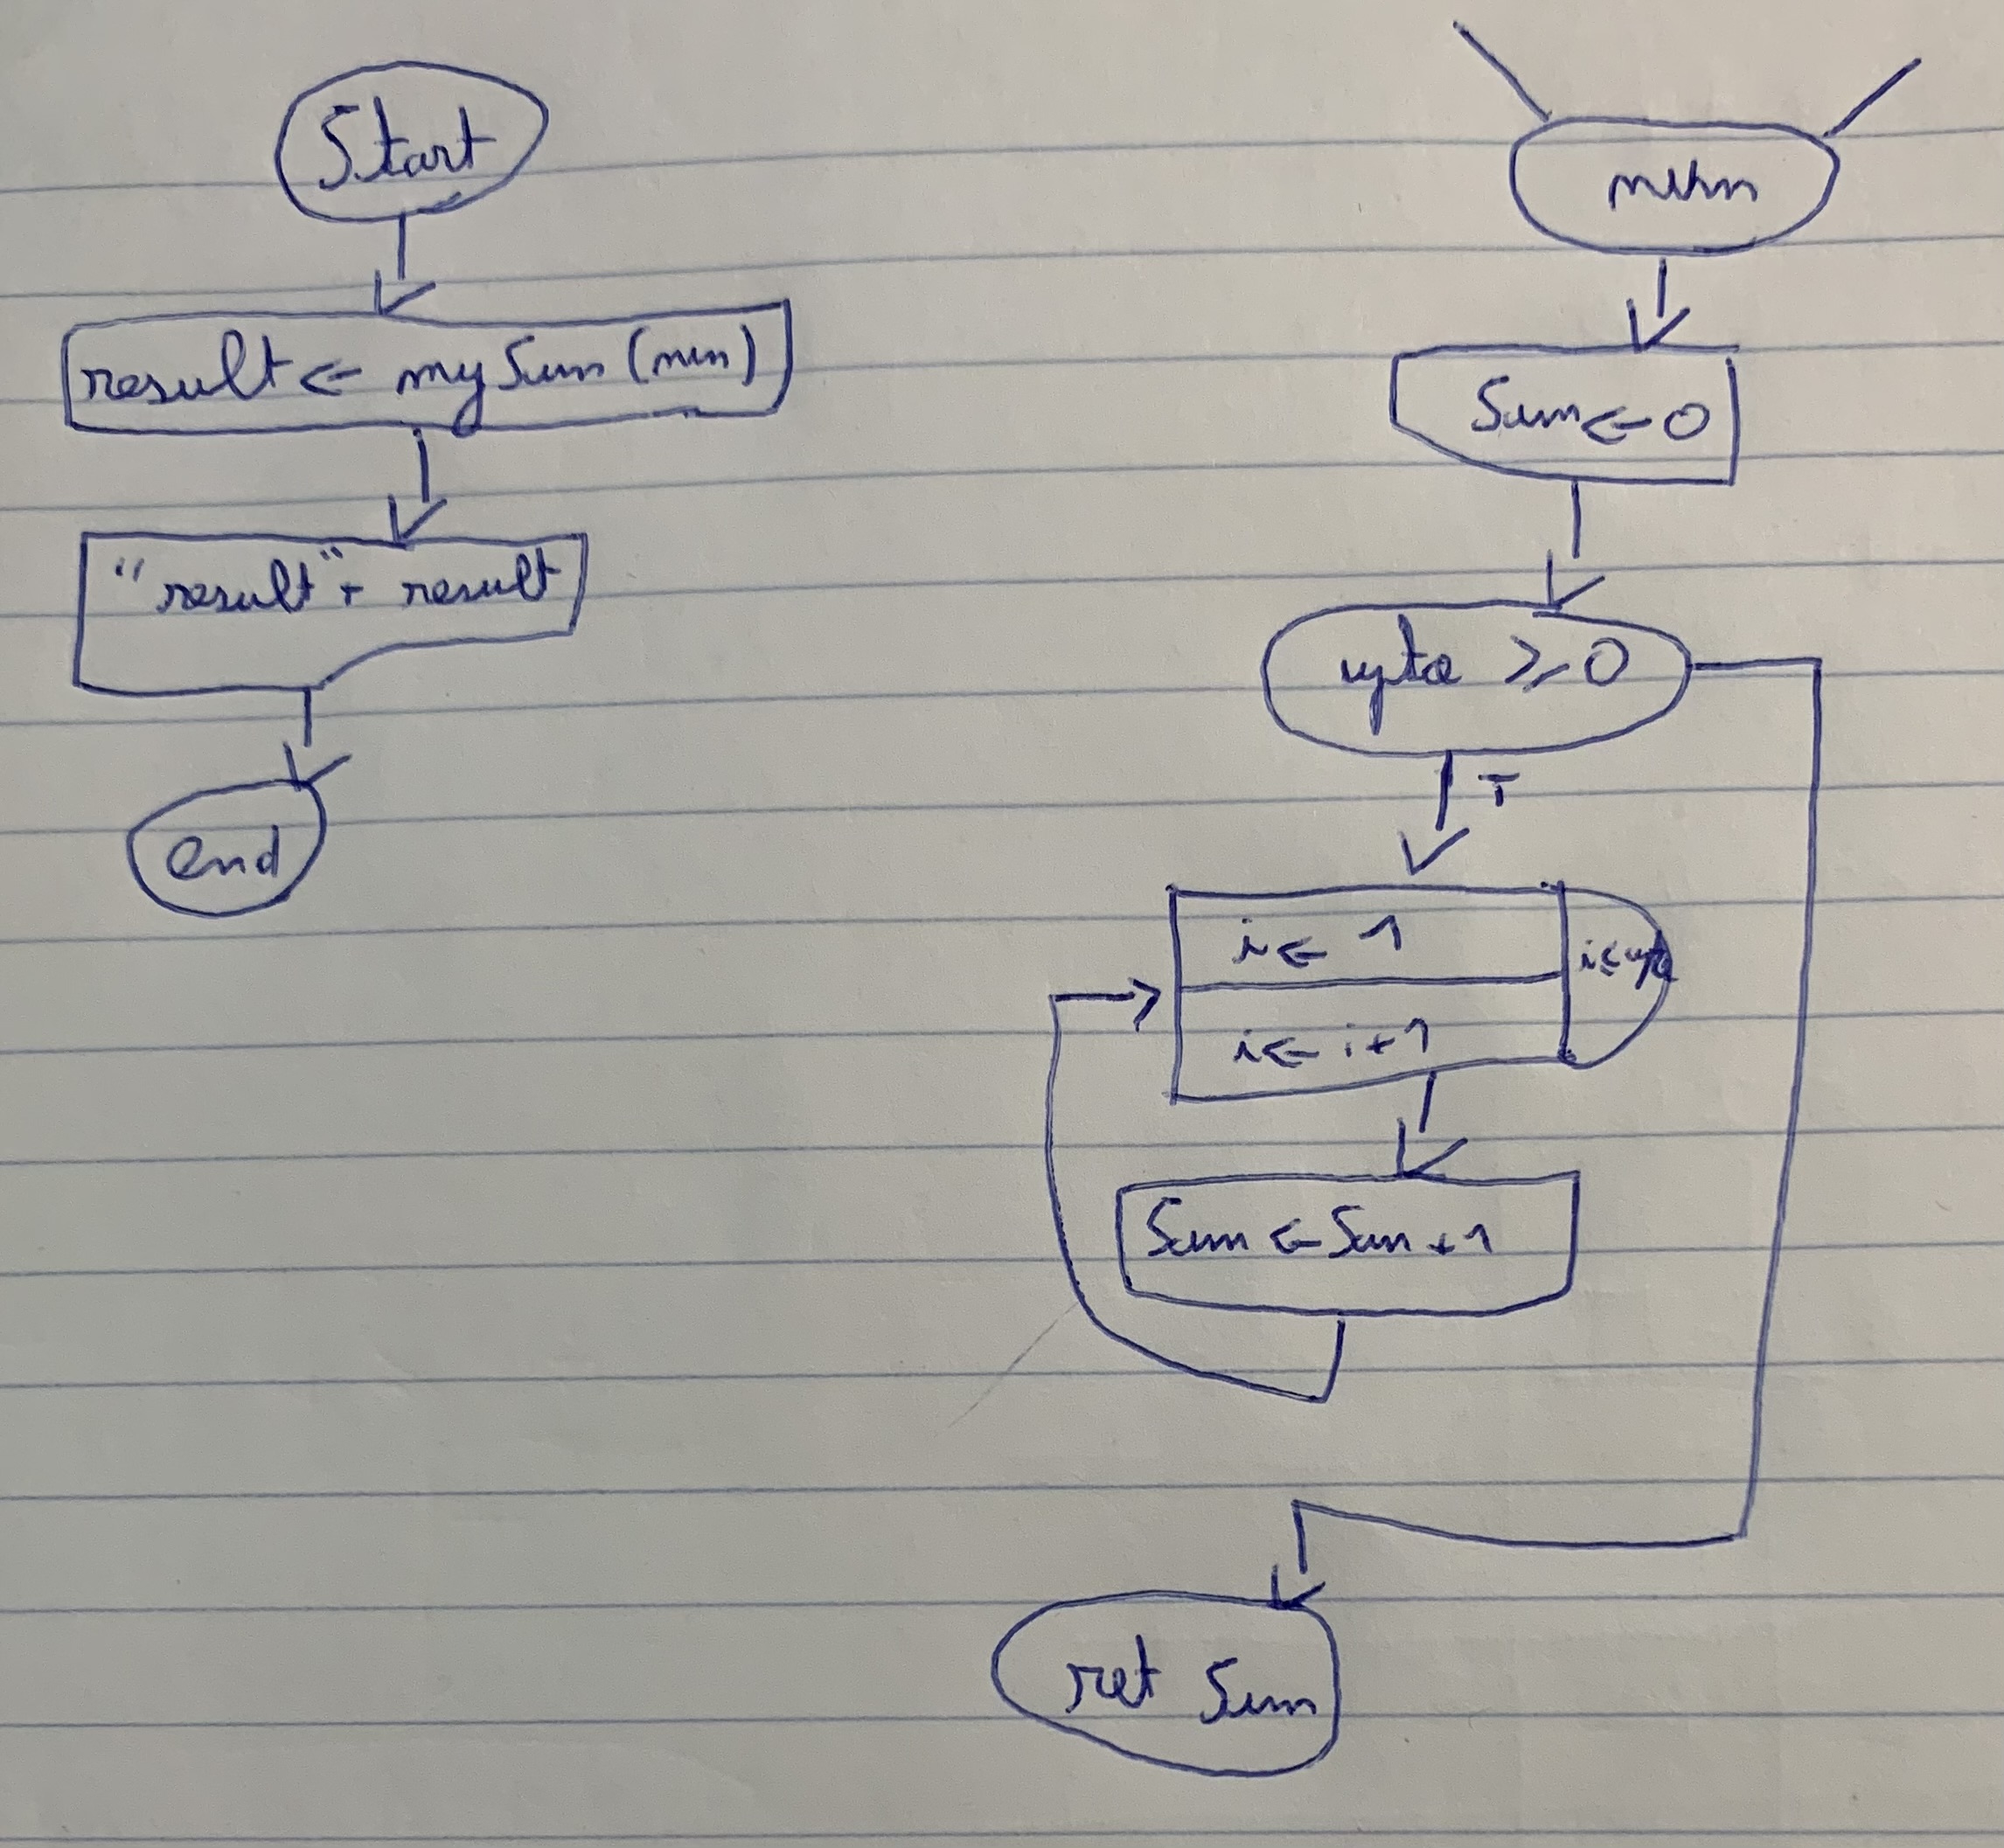 Start
result ← mySum (num)
"result" + result
end
Sum ← 0
upto ≥ 0
T
i ← 1
i ← i + 1
Sum ← Sum + 1
ret Sum